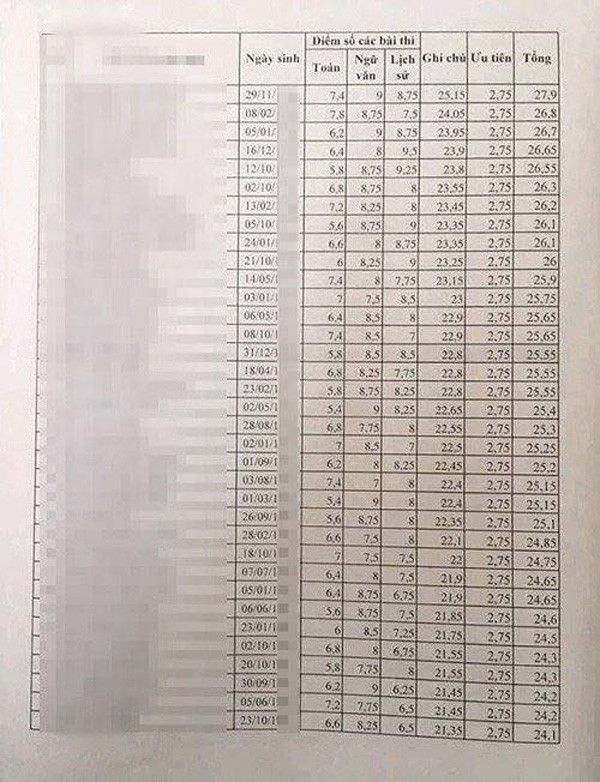 Ngày sinh Điểm số các bài thi Ghi chú Ưu tiên Tổng
Toán Ngữ văn Lịch sử
29/11/ 7,4 9 8,75 25,15 2,75 27,9
08/02/ 7,8 8,75 7,5 24,05 2,75 26,8
05/01/ 6,2 9 8,75 23,95 2,75 26,7
16/12/ 6,4 8 9,5 23,9 2,75 26,65
12/10/ 5,8 8,75 9,25 23,8 2,75 26,55
02/10/ 6,8 8,75 8 23,55 2,75 26,3
13/02/ 7,2 8,25 8 23,45 2,75 26,2
05/10/ 5,6 8,75 9 23,35 2,75 26,1
24/01/ 6,6 8 8,75 23,35 2,75 26,1
21/10/ 6 8,25 9 23,25 2,75 26
14/05/1 7,4 8 7,75 23,15 2,75 25,9
03/01/1 7 7,5 8,5 23 2,75 25,75
06/05/1 6,4 8,5 8 22,9 2,75 25,65
08/10/1 7,4 8,5 7 22,9 2,75 25,65
31/12/1 5,8 8,5 8,5 22,8 2,75 25,55
18/04/1 6,8 8,25 7,75 22,8 2,75 25,55
23/02/1 5,8 8,75 8,25 22,8 2,75 25,55
02/05/1 5,4 9 8,25 22,65 2,75 25,4
28/08/1 6,8 7,75 8 22,55 2,75 25,3
02/01/1 7 8,5 7 22,5 2,75 25,25
01/09/1 6,2 8 8,25 22,45 2,75 25,2
03/08/1 7,4 7 8 22,4 2,75 25,15
01/03/1 5,4 9 8 22,4 2,75 25,15
26/09/1 5,6 8,75 8 22,35 2,75 25,1
28/02/1 6,6 7,5 8 22,1 2,75 24,85
18/10/1 7 7,5 7,5 22 2,75 24,75
07/07/1 6,4 8 7,5 21,9 2,75 24,65
05/01/1 6,4 8,75 6,75 21,9 2,75 24,65
06/06/1 5,6 8,75 7,5 21,85 2,75 24,6
23/01/1 6 8,5 7,25 21,75 2,75 24,5
02/10/1 6,8 8 6,75 21,55 2,75 24,3
20/10/1 5,8 7,75 8 21,55 2,75 24,3
30/09/1 6,2 9 6,25 21,45 2,75 24,2
05/06/1 7,2 7,75 6,5 21,45 2,75 24,2
23/10/1 6,6 8,25 6,5 21,35 2,75 24,1